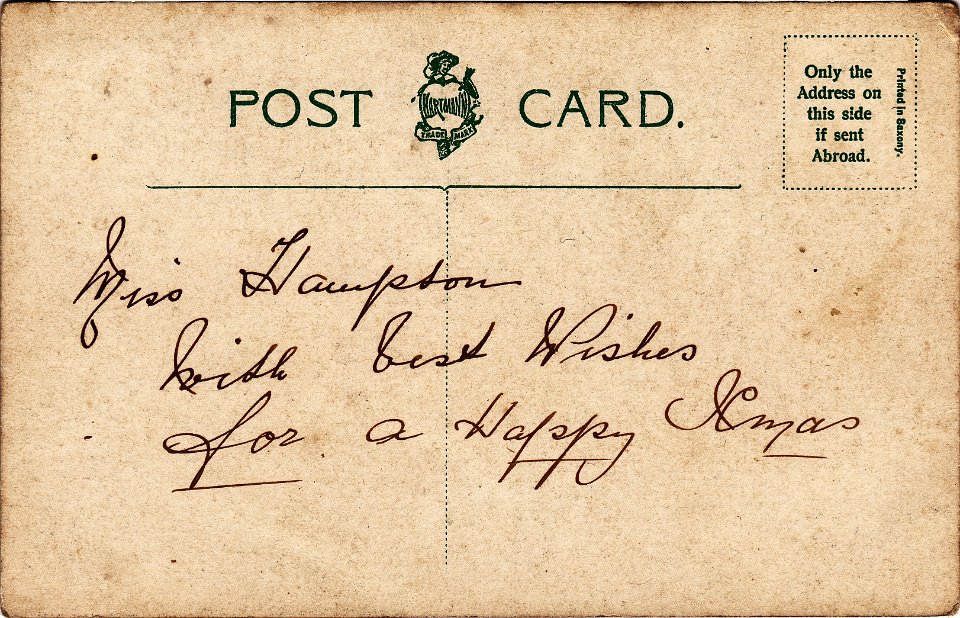 POST CARD.
HARTMANN
TRADE MARK
Only the
Address on
this side
if sent
Abroad.
Printed in Saxony.
Miss Hampton
With best Wishes
for a Happy Xmas